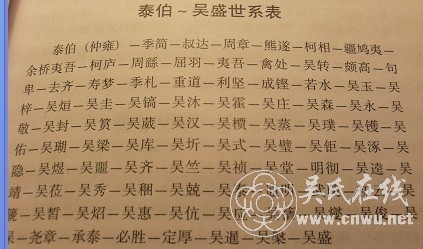 泰伯~吴盛世系表
泰伯(仲雍)—季简—叔达—周章—熊遂—柯相—疆鸠夷—
余桥夷吾—柯庐—周繇—屈羽—夷吾—禽处—吴转—颇高—句
卑—去齐—寿梦—季札—重道—利坚—成铿—若水—吴玉—吴
梓—吴烜—吴圭—吴镐—吴沐—吴霍—吴庄—吴森—吴水—吴
敬—吴封—吴赟—吴葳—吴汉—吴槚—吴蒸—吴璞—吴镬—吴
佑—吴瑚—吴梁—吴库—吴圻—吴式—吴壁—吴钜—吴涿—吴
隐—吴煜—吴噩—吴齐—吴竺—吴祯—吴堂—明彻—吴逵—吴
靖—吴莅—吴秀—吴稇—吴兢—吴
吴皙—吴炤—吴惠—吴伉—吴
吴俊—吴
杲—尧章—承泰—必胜—定厚—吴暹—吴桀—吴盛
吴氏在线
www.wuwww.cn